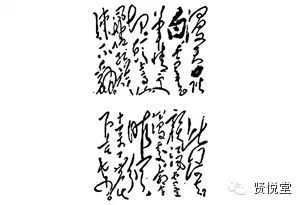 漫天皆
白雪里行
军情更迫
头上高山
风卷红旗
冻不翻
此行何去
赣江风雪
迷漫处命令
昨颁
十万工农
下吉安
贤悦堂